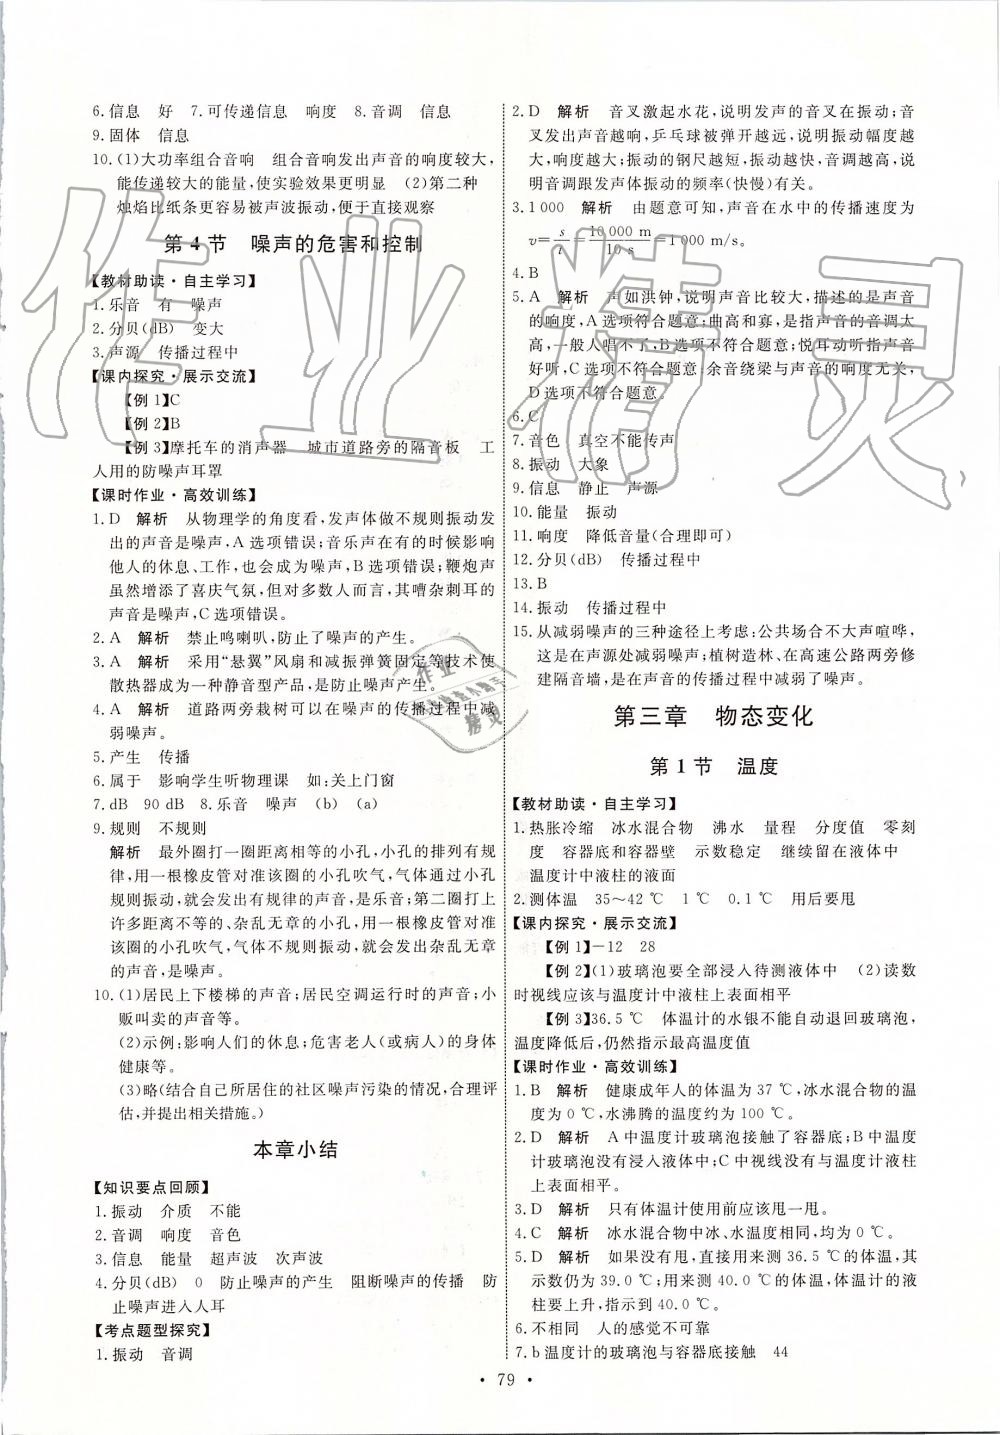 6.信息　好　7.可传递信息　响度　8.音调　信息
9.固体　信息
10.(1)大功率组合音响　组合音响发出声音的响度较大,
能传递较大的能量,使实验效果更明显　(2)第二种
烛焰比纸条更容易被声波振动,便于直接观察
第4节　噪声的危害和控制
【教材助读·自主学习】
1.乐音　有　噪声
2.分贝(dB)　变大
3.声源　传播过程中
【课内探究·展示交流】
【例1】C
【例2】B
【例3】摩托车的消声器　城市道路旁的隔音板　工
人用的防噪声耳罩
【课时作业·高效训练】
1.D　解析　从物理学的角度看,发声体做不规则振动发
出的声音是噪声,A选项错误;音乐声在有的时候影响
他人的休息、工作,会成为噪声,B选项错误;鞭炮声
虽然增添了喜庆气氛,但对多数人而言,其嘈杂刺耳的
声音是噪声,C选项错误。
2.A　解析　禁止鸣喇叭,防止了噪声的产生。
3.A　解析　采用“悬翼”风扇和减振弹簧固定等技术使
散热器成为一种静音型产品,是防止噪声产生。
4.A　解析　道路两旁栽树可以在噪声的传播过程中减
弱噪声。
5.产生　传播
6.属于　影响学生听物理课　如:关上门窗
7.dB　90 dB　8.乐音　噪声　(b)　(a)
9.规则　不规则
解析　最外圈打一圈距离相等的小孔,小孔的排列有规
律,用一根橡皮管对准该圈的小孔吹气,气体通过小孔
规则振动,就会发出有规律的声音,是乐音;第二圈打上
许多距离不等的、杂乱无章的小孔,用一根橡皮管对准
该圈的小孔吹气,气体不规则振动,就会发出杂乱无章
的声音,是噪声。
10.(1)居民上下楼梯的声音;居民空调运行时的声音;小
贩叫卖的声音等。
(2)示例:影响人们的休息;危害老人(或病人)的身体
健康等。
(3)略(结合自己所居住的社区噪声污染的情况,合理评
估,并提出相关措施。)
本章小结
【知识要点回顾】
1.振动　介质　不能
2.音调　响度　音色
3.信息　能量　超声波　次声波
4.分贝(dB)　0　防止噪声的产生　阻断噪声的传播　防
止噪声进入人耳
【考点题型探究】
1.振动　音调
2.D　解析　音叉激起水花,说明发声的音叉在振动;音
叉发出声音越响,乒乓球被弹开越远,说明振动幅度越
大,响度越大;振动的钢尺越短,振动越快,音调越高,说
明音调跟发声体振动的频率(快慢)有关。
3.1 000　解析　由题意可知,声音在水中的传播速度为
v=s/t=10 000 m/10 s=1 000 m/s。
4.B
5.A　解析　声如洪钟,说明声音比较大,描述的是声音
的响度,A选项符合题意;曲高和寡,是指声音的音调太
高,一般人唱不了,B选项不符合题意;悦耳动听指声音
好听,C选项不符合题意;余音绕梁与声音的响度无关,
D选项不符合题意。
6.C
7.音色　真空不能传声
8.振动　大象
9.信息　静止　声源
10.能量　振动
11.响度　降低音量(合理即可)
12.分贝(dB)　传播过程中
13.B
14.振动　传播过程中
15.从减弱噪声的三种途径上考虑:公共场合不大声喧哗,
这是在声源处减弱噪声;植树造林、在高速公路两旁修
建隔音墙,是在声音的传播过程中减弱了噪声。
第三章　物态变化
第1节　温度
【教材助读·自主学习】
1.热胀冷缩　冰水混合物　沸水　量程　分度值　零刻
度　容器底和容器壁　示数稳定　继续留在液体中
温度计中液柱的液面
2.测体温　35～42 ℃　1 ℃　0.1 ℃　用后要甩
【课内探究·展示交流】
【例1】－12　28
【例2】(1)玻璃泡要全部浸入待测液体中　(2)读数
时视线应该与温度计中液柱上表面相平
【例3】36.5 ℃　体温计的水银不能自动退回玻璃泡,
温度降低后,仍然指示最高温度值
【课时作业·高效训练】
1.B　解析　健康成年人的体温为37 ℃,冰水混合物的温
度为0 ℃,水沸腾的温度约为100 ℃。
2.D　解析　A中温度计玻璃泡接触了容器底;B中温度
计玻璃泡没有浸入液体中;C中视线没有与温度计液柱
上表面相平。
3.D　解析　只有体温计使用前应该甩一甩。
4.C　解析　冰水混合物中冰、水温度相同,均为0 ℃。
5.D　解析　如果没有甩,直接用来测36.5 ℃的体温,其
示数仍为39.0 ℃;用来测40.0 ℃的体温,体温计的液
柱要上升,指示到40.0 ℃。
6.不相同　人的感觉不可靠
7.b温度计的玻璃泡与容器底接触　44
· 79 ·
作业精灵